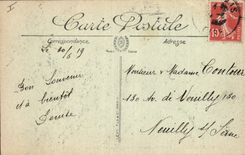 Carte Postale
Correspondance
Adresse
Le 20/6/19
Bon Souvenir
et à bientôt
Monsieur & Madame Contour
130 Av. de Neuilly 130
Neuilly s/ Seine
15